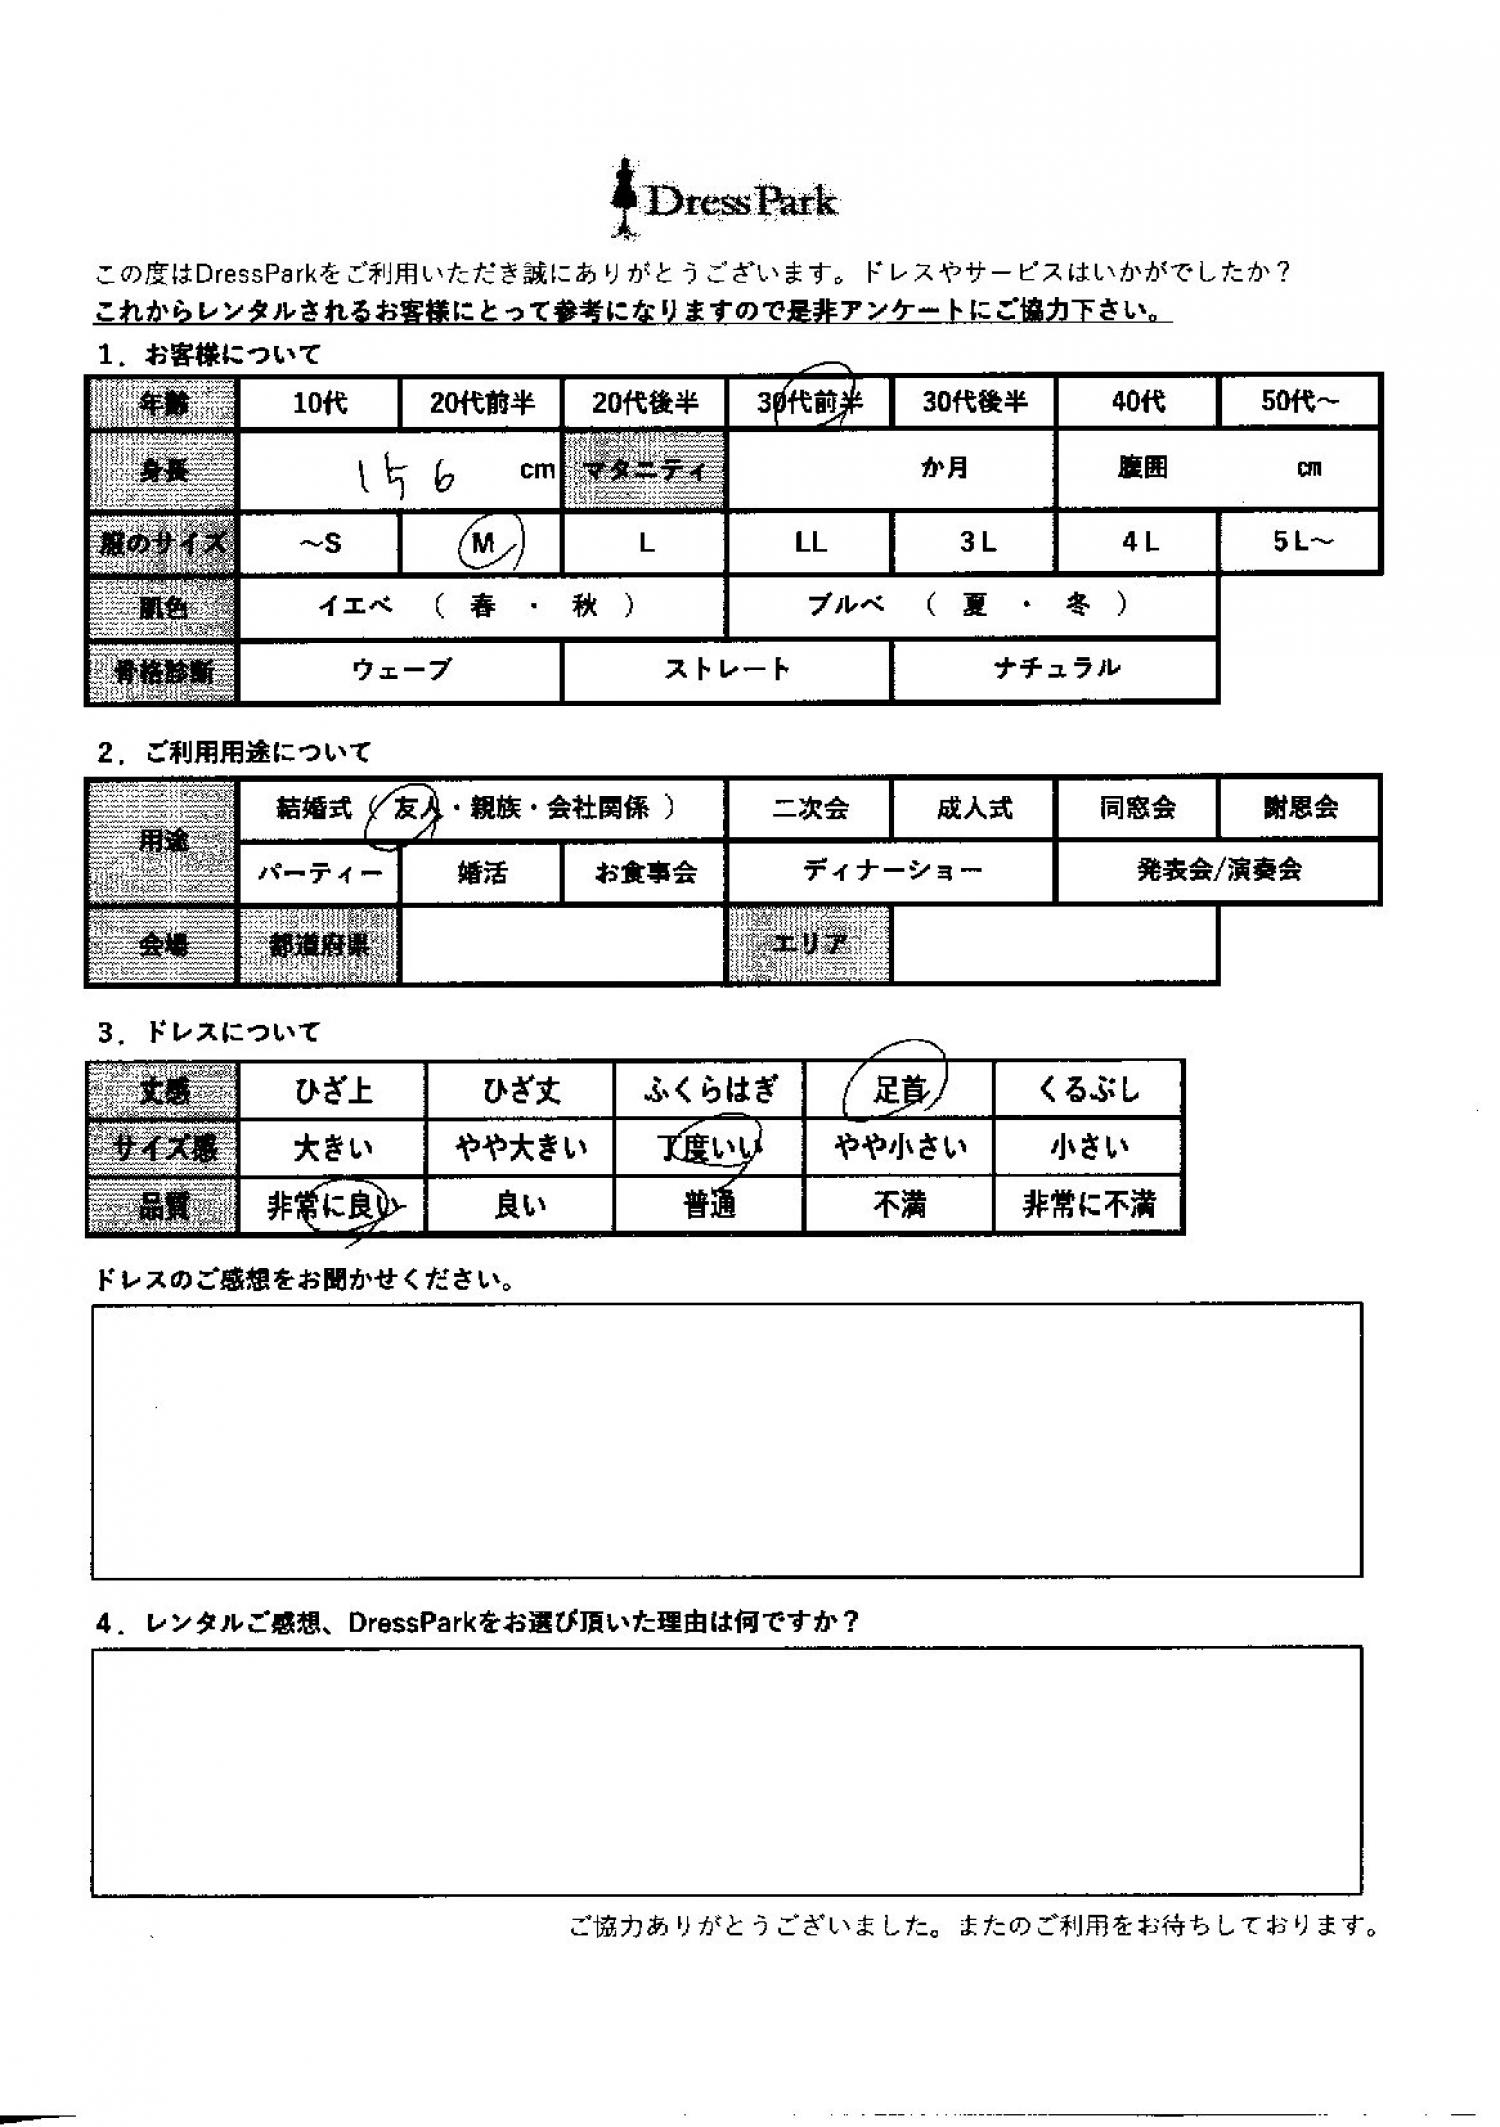 DressPark
この度はDressParkをご利用いただき誠にありがとうございます。ドレスやサービスはいかがでしたか？
これからレンタルされるお客様にとって参考になりますので是非アンケートにご協力下さい。
1．お客様について
年齢 10代 20代前半 20代後半 30代前半 30代後半 40代 50代～
身長 156 cm マタニティ か月 腹囲 cm
服のサイズ ～S M L LL 3L 4L 5L～
肌色 イエベ （ 春 ・ 秋 ） ブルベ （ 夏 ・ 冬 ）
骨格診断 ウェーブ ストレート ナチュラル
2．ご利用用途について
用途 結婚式（ 友人・親族・会社関係 ） 二次会 成人式 同窓会 謝恩会
パーティー 婚活 お食事会 ディナーショー 発表会/演奏会
会場 都道府県 エリア
3．ドレスについて
丈感 ひざ上 ひざ丈 ふくらはぎ 足首 くるぶし
サイズ感 大きい やや大きい 丁度いい やや小さい 小さい
品質 非常に良い 良い 普通 不満 非常に不満
ドレスのご感想をお聞かせください。
4．レンタルご感想、DressParkをお選び頂いた理由は何ですか？
ご協力ありがとうございました。またのご利用をお待ちしております。